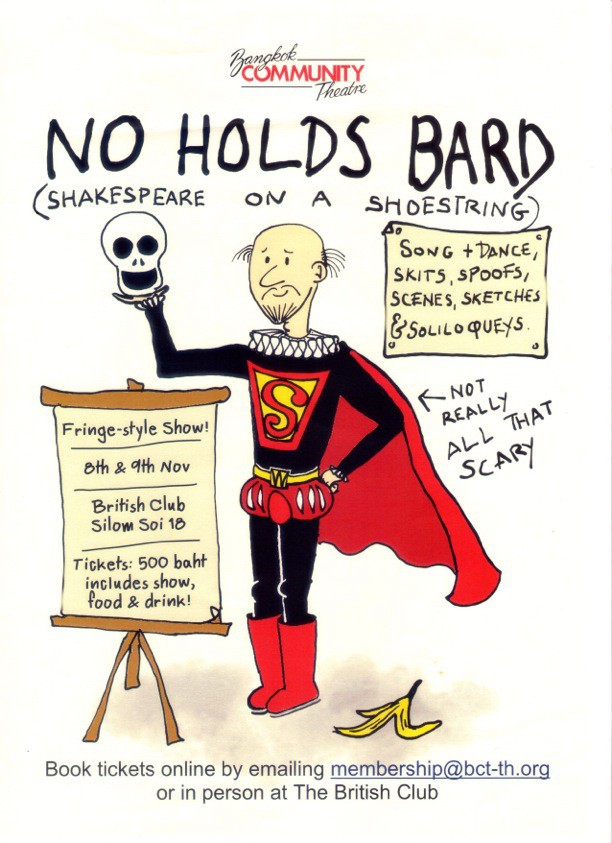 Bangkok
COMMUNITY
Theatre
NO HOLDS BARD
(SHAKESPEARE ON A SHOESTRING)
SONG + DANCE,
SKITS, SPOOFS,
SCENES, SKETCHES
& SOLILOQUEYS.
← NOT
REALLY
ALL THAT
SCARY
S
W
Fringe-style Show!
8th & 9th Nov
British Club
Silom Soi 18
Tickets: 500 baht
includes show,
food & drink!
Book tickets online by emailing membership@bct-th.org
or in person at The British Club